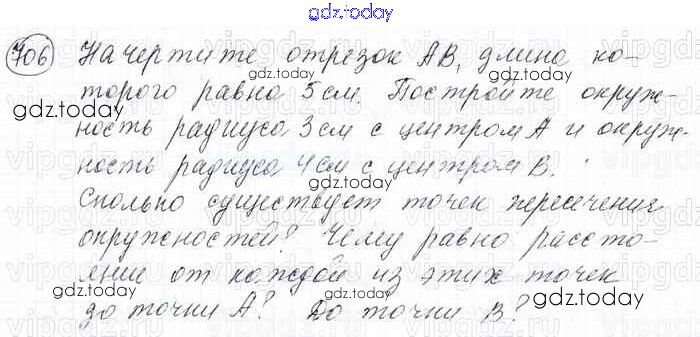 gdz.today
706 Начертите отрезок АВ, длина ко-
gdz.today gdz.today
торого равна 5 см. Постройте окруж-
gdz.today
ность радиуса 3 см с центром А и окруж-
gdz.today
ность радиуса 4 см с центром В.
Сколько существует точек пересечения
gdz.today
окружностей? Чему равно расстоя-
янии от каждой из этих точек
gdz.today gdz.today
до точки А? До точки В?